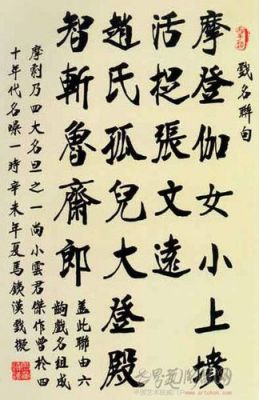 戲名聯句
摩登伽女小上墳
活捉張文遠
趙氏孤兒大登殿
智斬魯齋郎
蓋此聯由六
齣戲名組成
摩乃四大名旦之一尚小雲君傑作曾於四
十年代名噪一時辛未年夏馬鐵漢戲擬